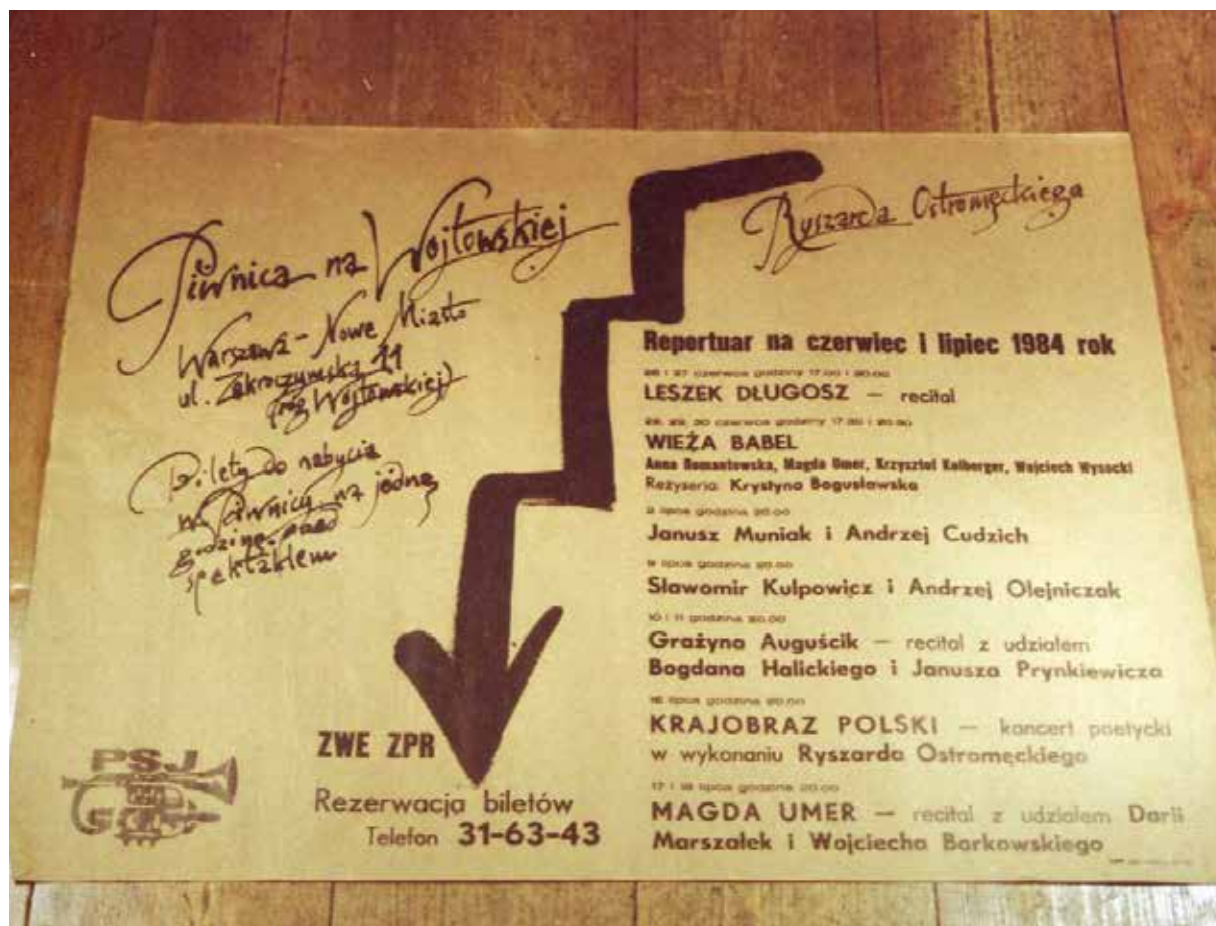 Piwnica na Wójtowskiej
Warszawa - Nowe Miasto
ul. Zakroczymska 11
(róg Wójtowskiej)
Bilety do nabycia
w Piwnicy na jedną
godzinę przed
spektaklem
Ryszarda Ostromęckiego
Repertuar na czerwiec i lipiec 1984 rok
26 i 27 czerwca godziny 17.00 i 20.00
LESZEK DŁUGOSZ — recital
28, 29, 30 czerwca godziny 17.30 i 20.30
WIEŻA BABEL
Anna Romantowska, Magda Umer, Krzysztof Kolberger, Wojciech Wysocki
Reżyseria: Krystyna Bogusławska
2 lipca godzina 20.00
Janusz Muniak i Andrzej Cudzich
9 lipca godzina 20.00
Sławomir Kulpowicz i Andrzej Olejniczak
10 i 11 godzina 20.00
Grażyna Auguścik — recital z udziałem
Bogdana Halickiego i Janusza Prynkiewicza
16 lipca godzina 20.00
KRAJOBRAZ POLSKI — koncert poetycki
w wykonaniu Ryszarda Ostromęckiego
17 i 18 lipca godzina 20.00
MAGDA UMER — recital z udziałem Darii
Marszałek i Wojciecha Borkowskiego
PSJ
ZWE ZPR
Rezerwacja biletów
Telefon 31-63-43